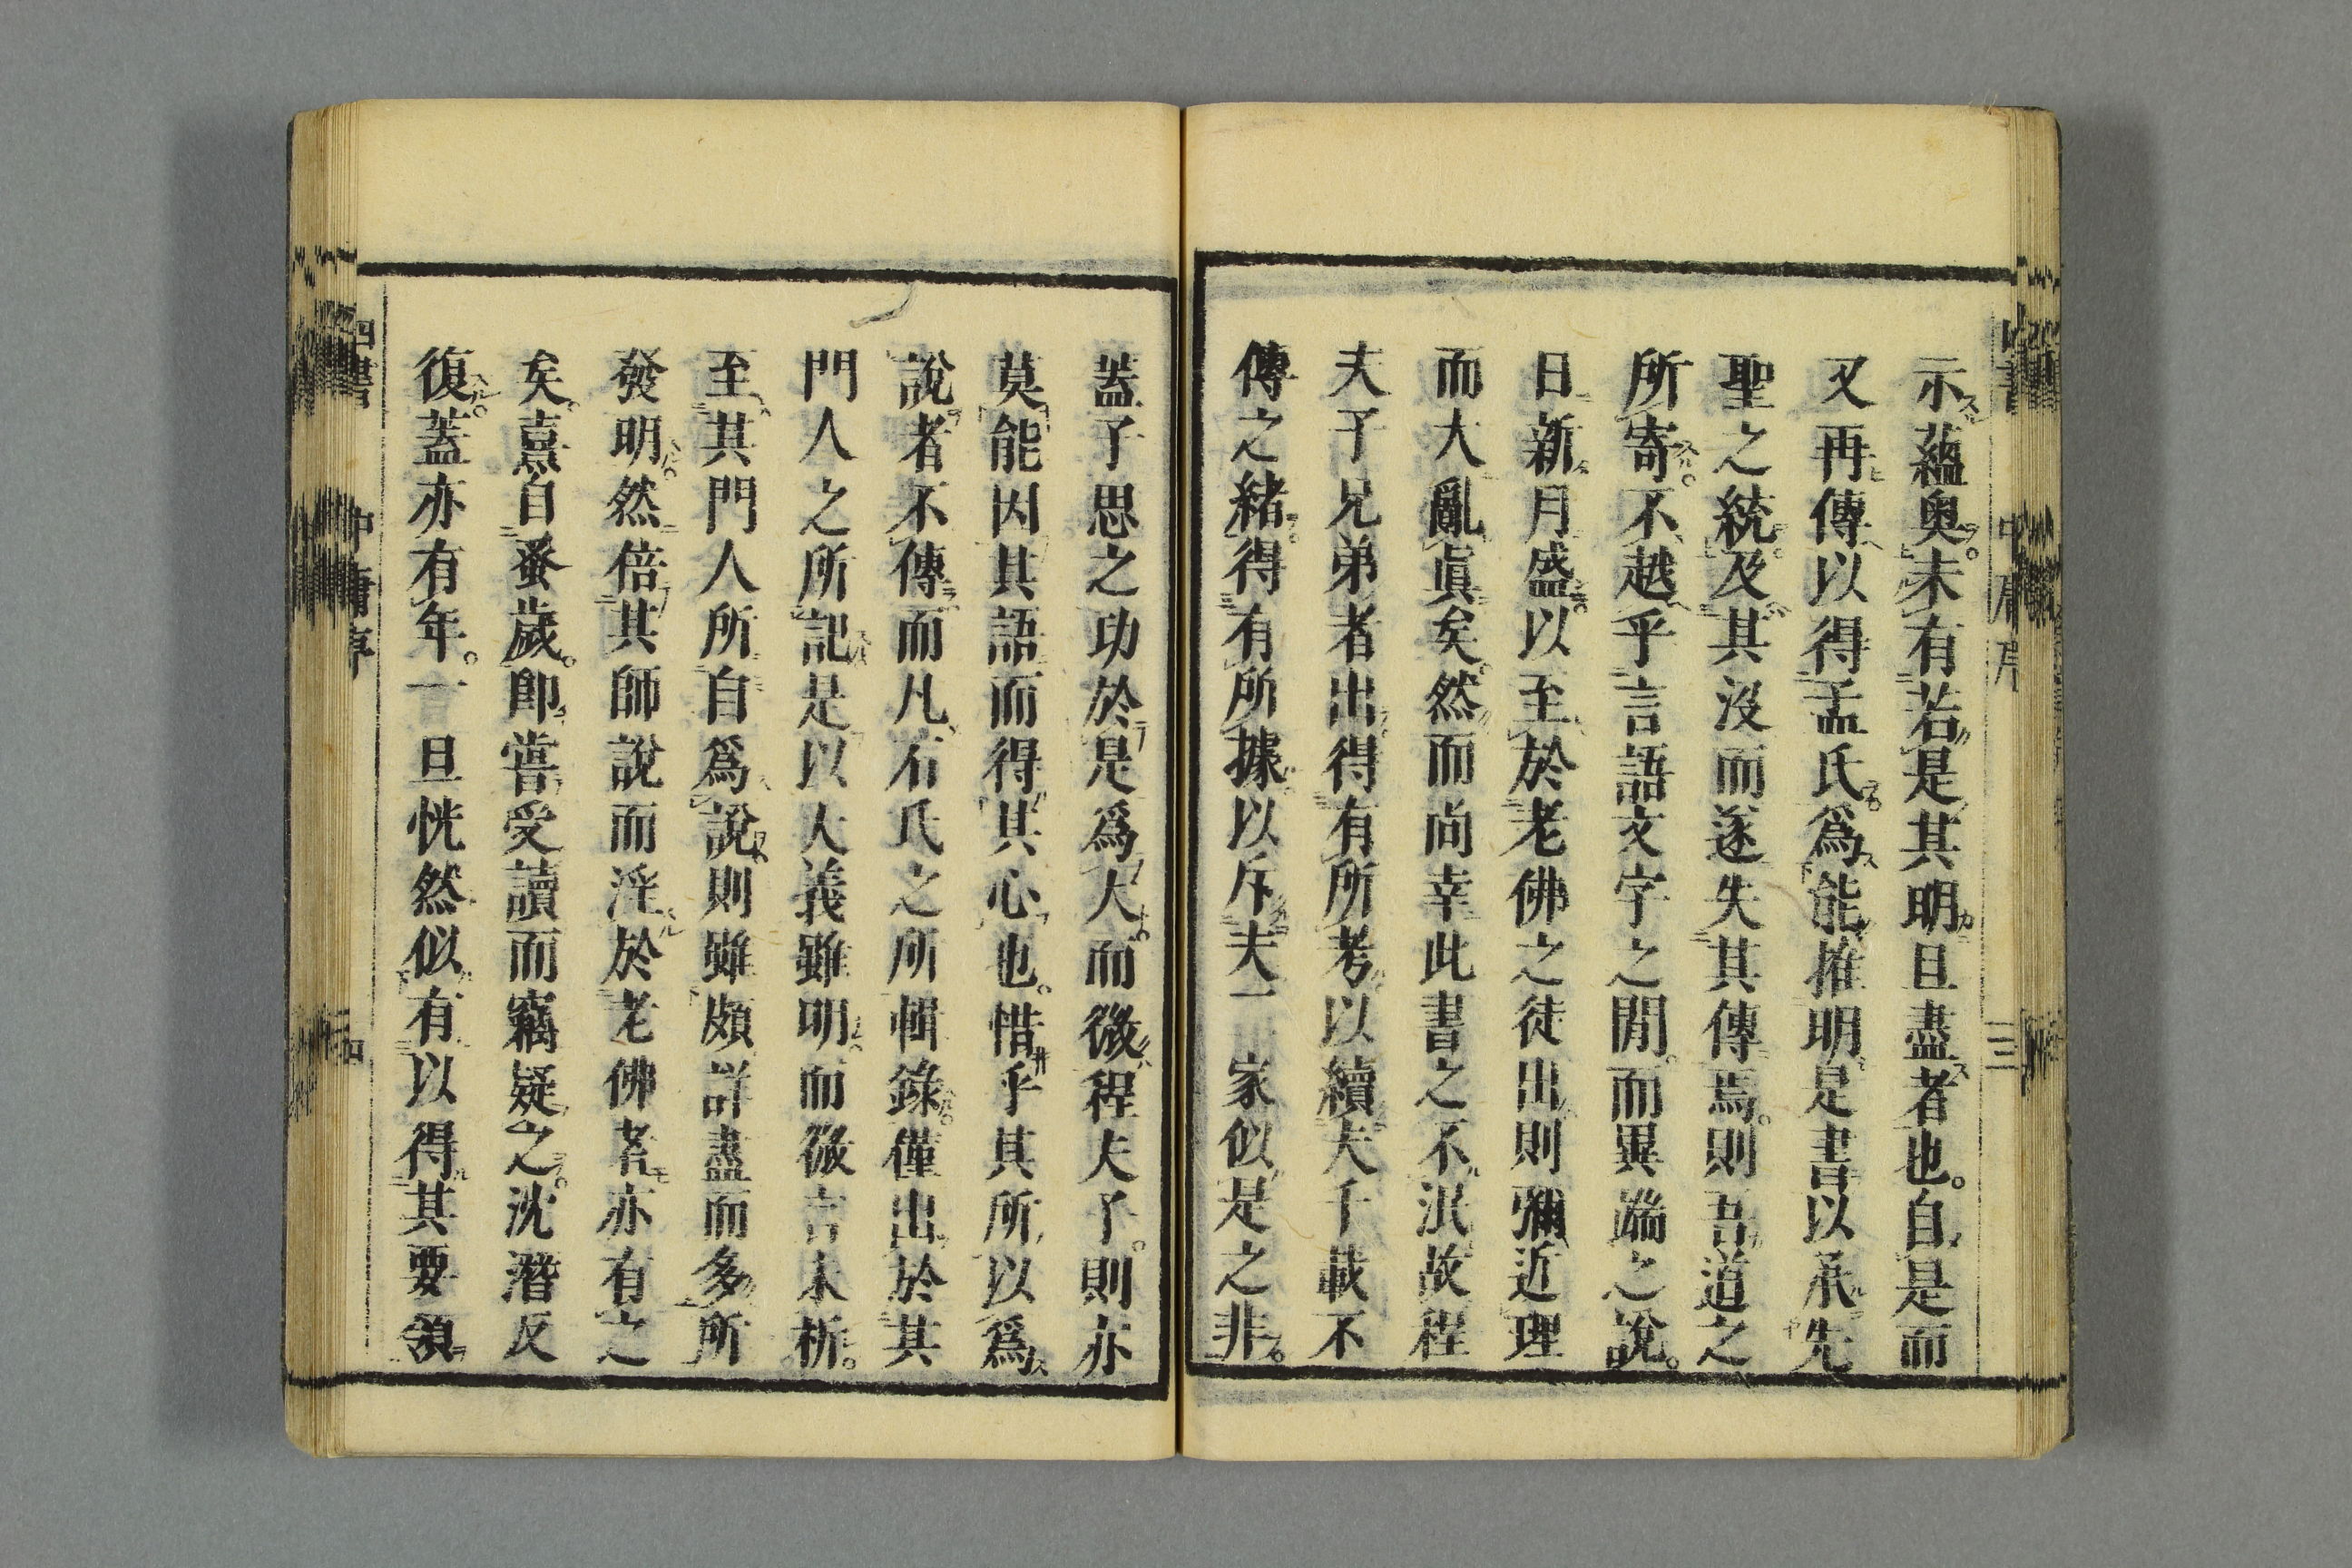 示蘊奥。未有若是其明且盡者也。自是而
又再傳以得孟氏。爲能推明是書以承先
聖之統。及其沒而遂失其傳焉。則吾道之
所寄。不越乎言語文字之閒。而異端之說。
日新月盛。以至於老佛之徒出則彌近理
而大亂眞矣。然而尚幸此書之不泯故程
夫子兄弟者出。得有所考。以續夫千載不
傳之緒。得有所據。以斥夫二家似是之非。
蓋子思之功於是爲大。而微程夫子。則亦
莫能因其語而得其心也。惜乎其所以爲
說者不傳而凡石氏之所輯錄。僅出於其
門人之所記是以大義雖明。而微言未析。
至其門人所自爲說則雖頗詳盡而多所
發明。然倍其師說而淫於老佛者亦有之
矣。熹自蚤歲。即嘗受讀而竊疑之。沈潛反
復。蓋亦有年。一旦恍然似有以得其要領
四書
中庸序